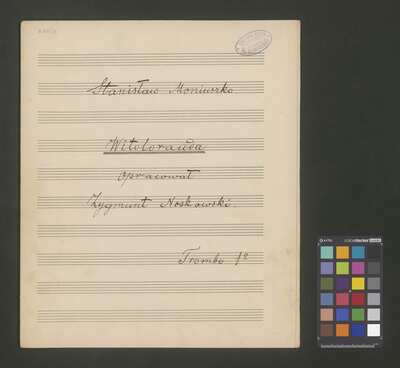 Stanisław Moniuszko
Witolorauda
opracował
Zygmunt Noskowski.
Trombe 1º